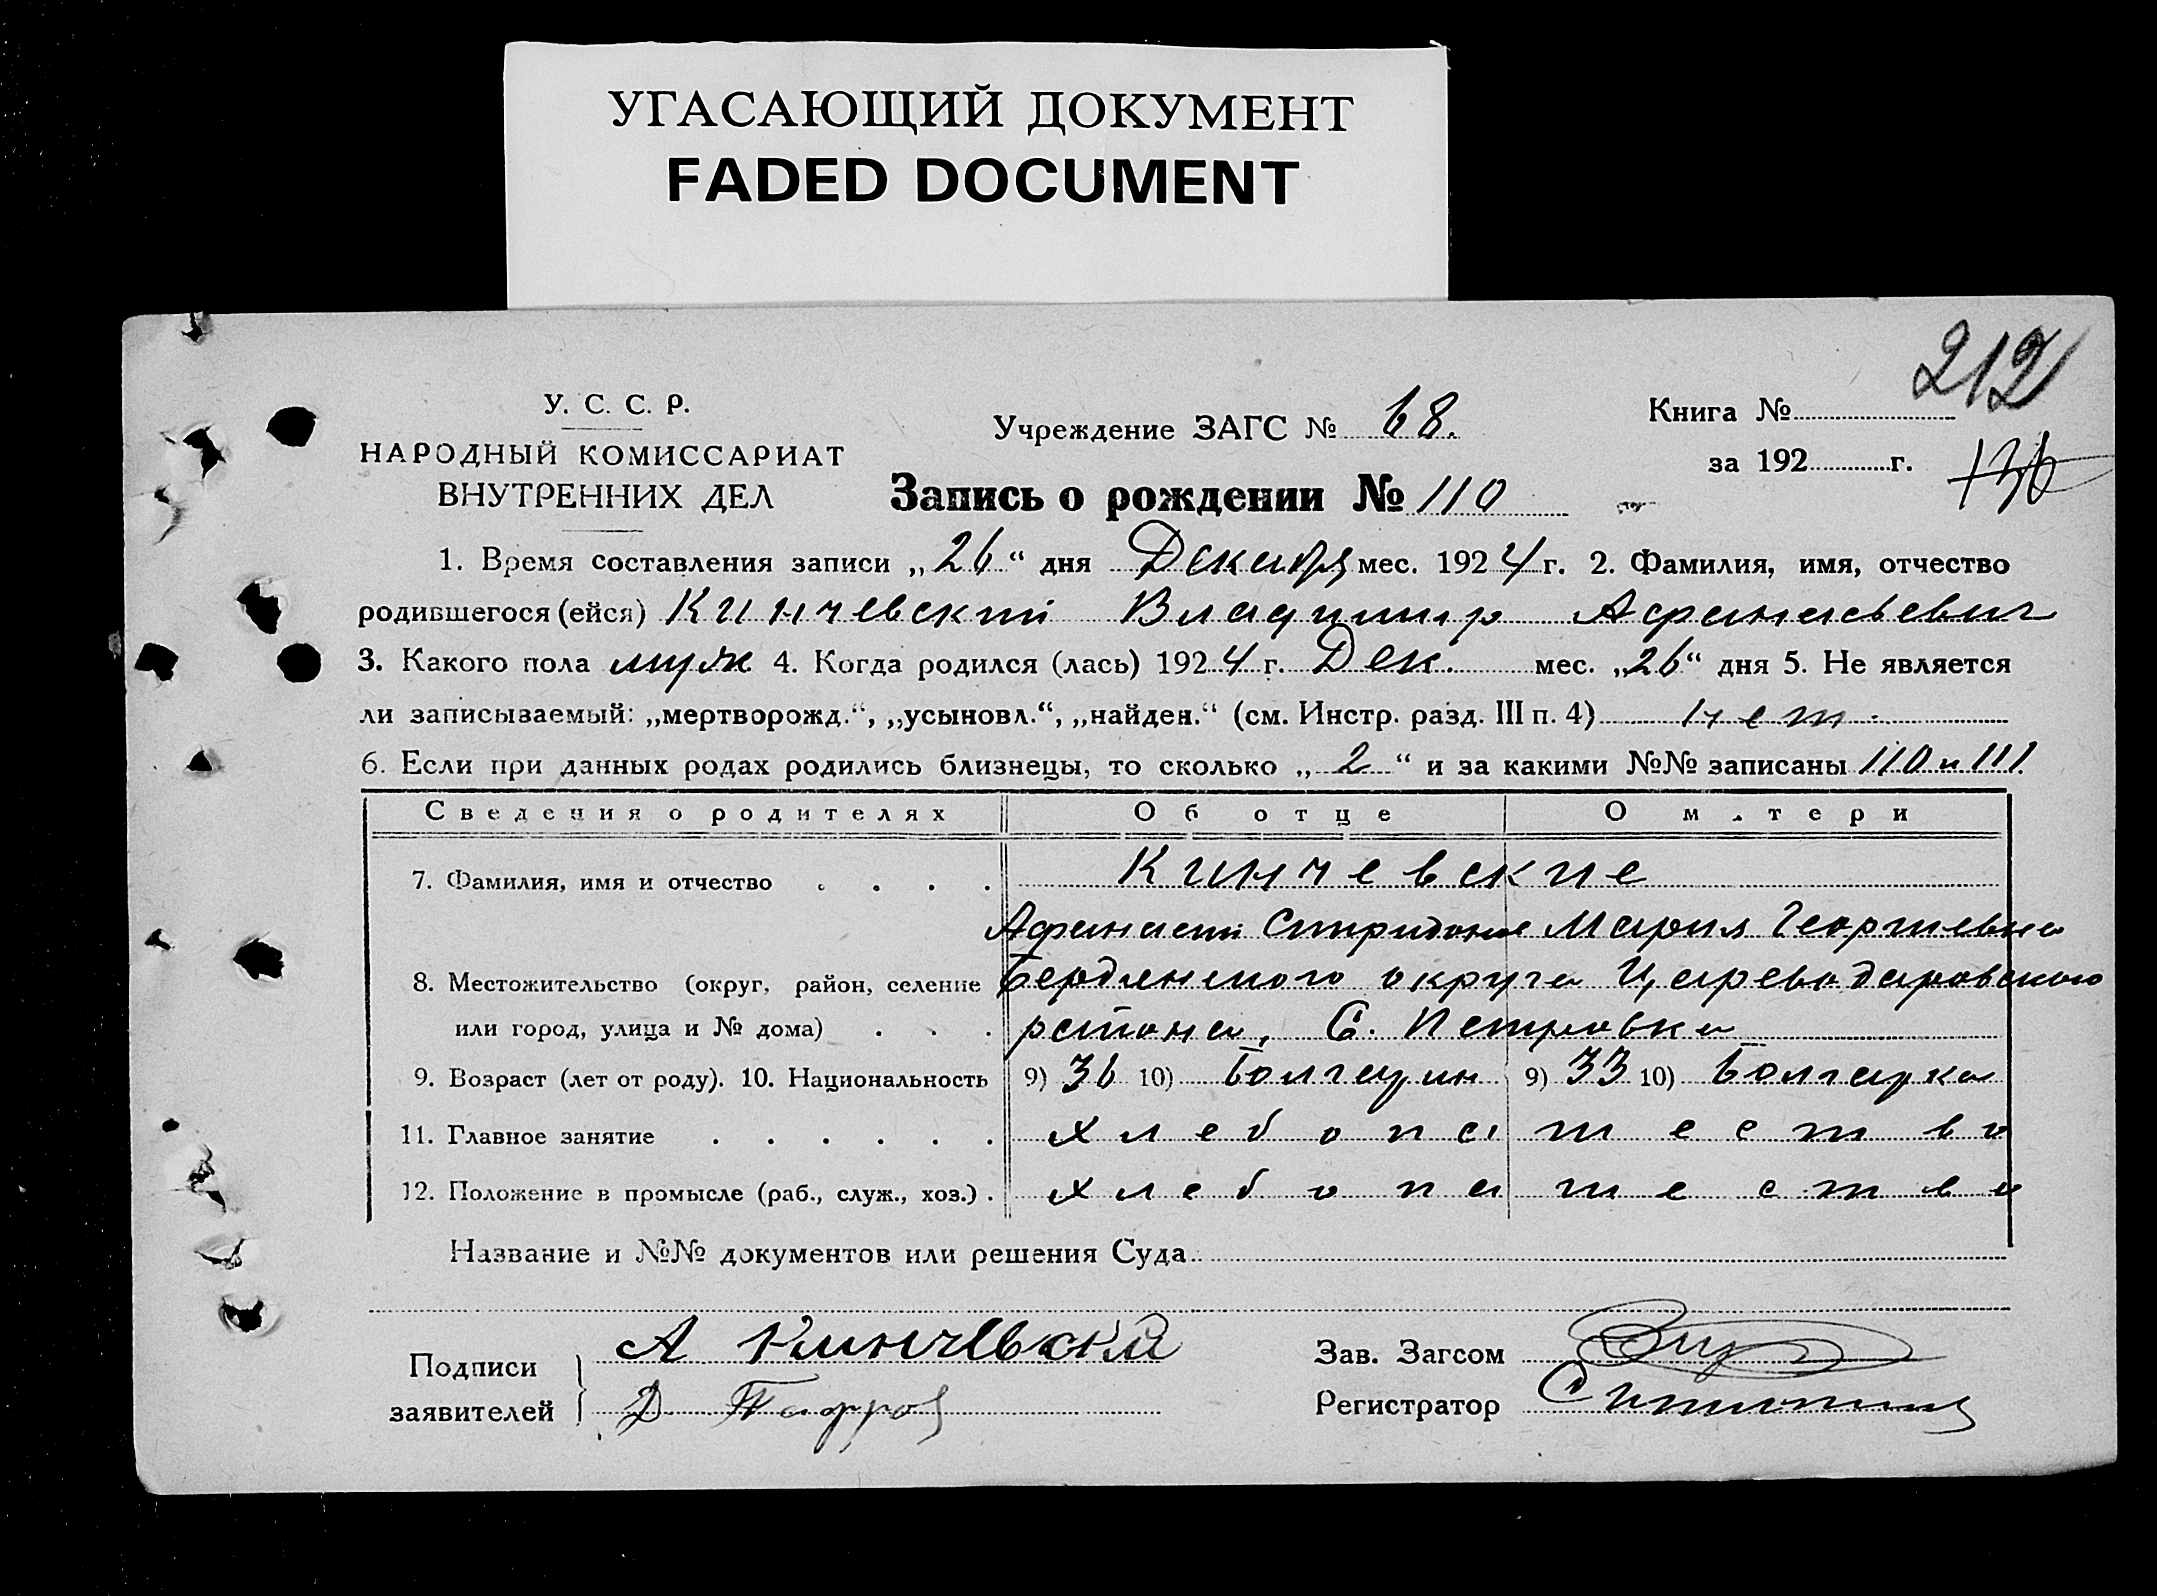 УГАСАЮЩИЙ ДОКУМЕНТ
FADED DOCUMENT
212
У. С. С. Р.
НАРОДНЫЙ КОМИССАРИАТ
ВНУТРЕННИХ ДЕЛ
Учреждение ЗАГС № 68.
Книга №
за 192 г. 136
Запись о рождении № 110
1. Время составления записи „26“ дня Декабря мес. 1924 г. 2. Фамилия, имя, отчество
родившегося (ейся) Кинчевский Владимир Афанасьевич
3. Какого пола муж 4. Когда родился (лась) 1924 г. Дек. мес. „26“ дня 5. Не является
ли записываемый: „мертворожд.“, „усыновл.“, „найден.“ (см. Инстр. разд. III п. 4) нет.
6. Если при данных родах родились близнецы, то сколько „2“ и за какими №№ записаны 110 и 111
Сведения о родителях Об отце О матери
7. Фамилия, имя и отчество . . . . Кинчевские
Афанасий Спиридонов Мария Георгиевна
8. Местожительство (округ, район, селение Бердянского округа Цареводаровского
или город, улица и № дома) . . . района, С. Петровка
9. Возраст (лет от роду). 10. Национальность 9) 36 10) Болгарин 9) 33 10) Болгарка
11. Главное занятие . . . . . . хлебопашество
12. Положение в промысле (раб., служ., хоз.) . хлебопашество
Название и №№ документов или решения Суда
Подписи
заявителей
А Кинчевский
Д.
Зав. Загсом
Регистратор